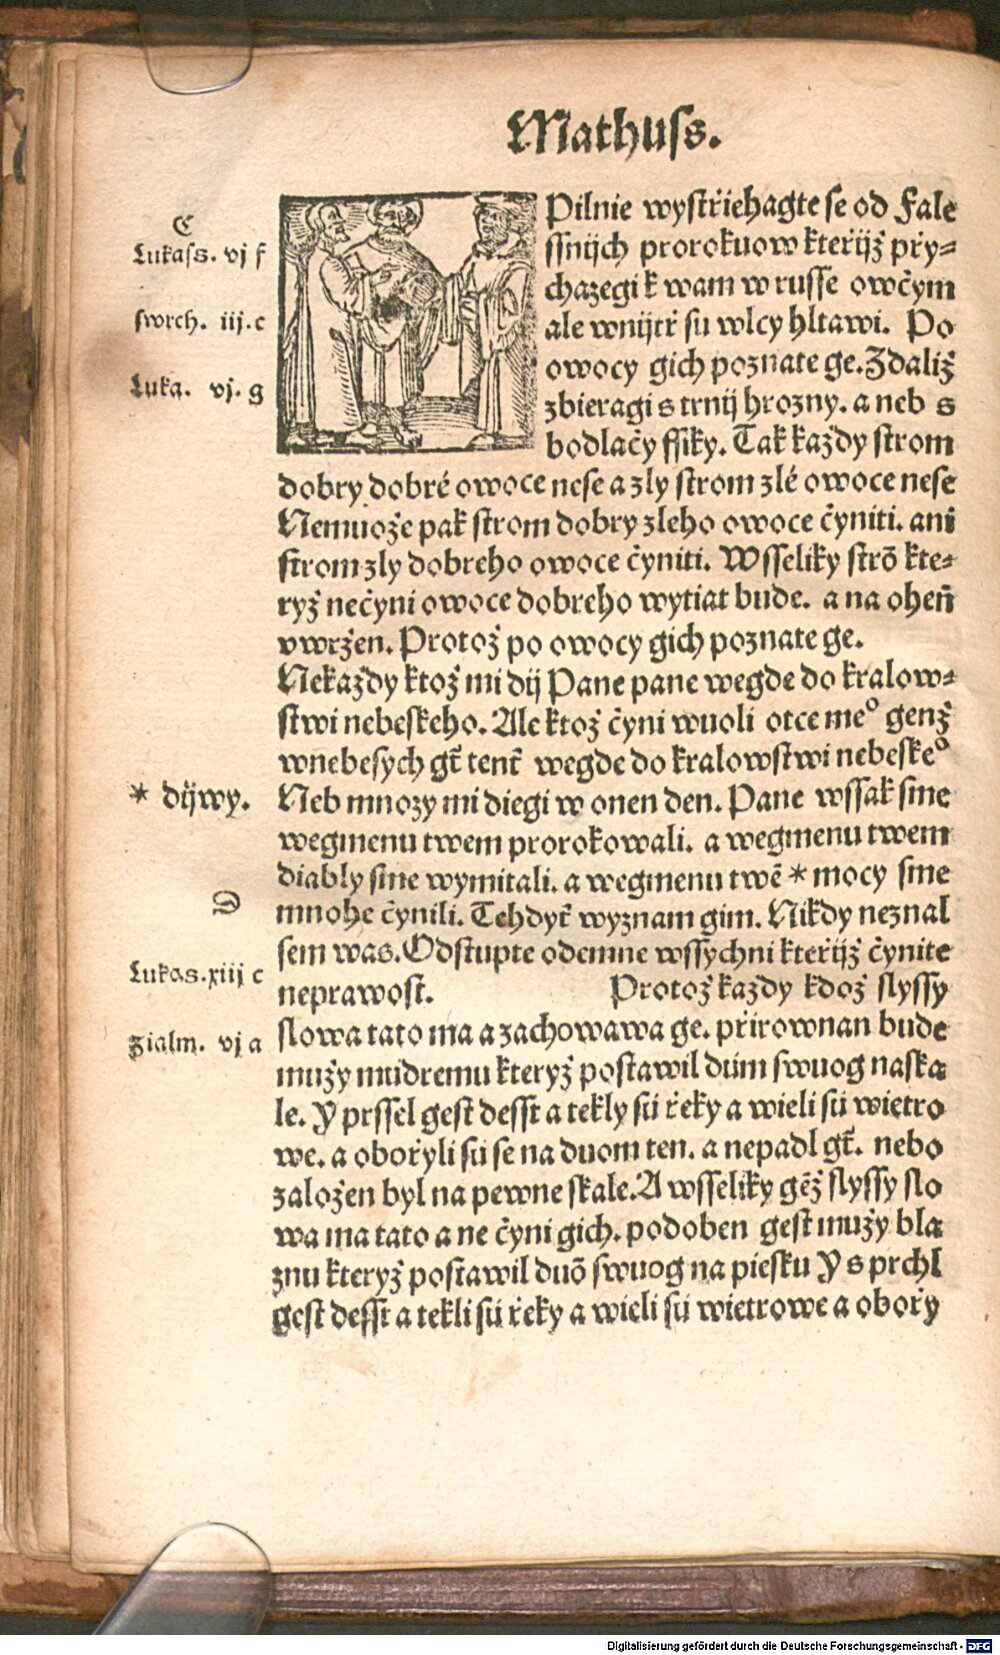 Mathuss.
C
Lukass. vj f
swrch. iij.c
Luka. vj. g
Pilnie wystřiehagte se od Fale
ssnijch prorokuow kteřijž přy=
chazegi k wam w russe owčym
ale wnijtř su wlcy hltawi. Po
owocy gich poznate ge. Zdaliž
zbieragi s trnij hrozny. a neb s
bodlačy ffiky. Tak každy strom
dobry dobré owoce nese a zly strom zlé owoce nese
Nemuože pak strom dobry zleho owoce čyniti. ani
strom zly dobreho owoce čyniti. Wsseliky strō kte=
ryž nečyni owoce dobreho wytiat bude. a na oheň
vwržen. Protož po owocy gich poznate ge.
Nekaždy ktož mi dij Pane pane wegde do kralow=
stwi nebeskeho. Ale ktož čyni wuoli otce meº genž
wnebesych gt̄ tenť wegde do kralowstwi nebeskeº
* diwy.
Neb mnozy mi diegi w onen den. Pane wssak sme
wegmenu twem prorokowali. a wegmenu twem
diably sme wymitali. a wegmenu twē * mocy sme
D
mnohe čynili. Tehdyť wyznam gim. Nikdy neznal
sem was. Odstupte odemne wssychni kteřijž čynite
Lukas.xiij c
neprawost. Protož každy kdož slyssy
zialm. vj a
slowa tato ma a zachowawa ge. přirownan bude
mužy mudremu kteryž postawil dům swuog naska
le. Y prssel gest desst a tekly sú řeky a wieli sú wietro
we. a obořyli sú se na duom ten. a nepadl gt̄. nebo
založen byl na pewne skale. A wsseliky gēž slyssy slo
wa ma tato a ne čyni gich. podoben gest mužy bla
znu kteryž postawil duō swuog na piesku Y s prchl
gest desst a tekli sú řeky a wieli sú wietrowe a obořy
Digitalisierung gefördert durch die Deutsche Forschungsgemeinschaft - DFG